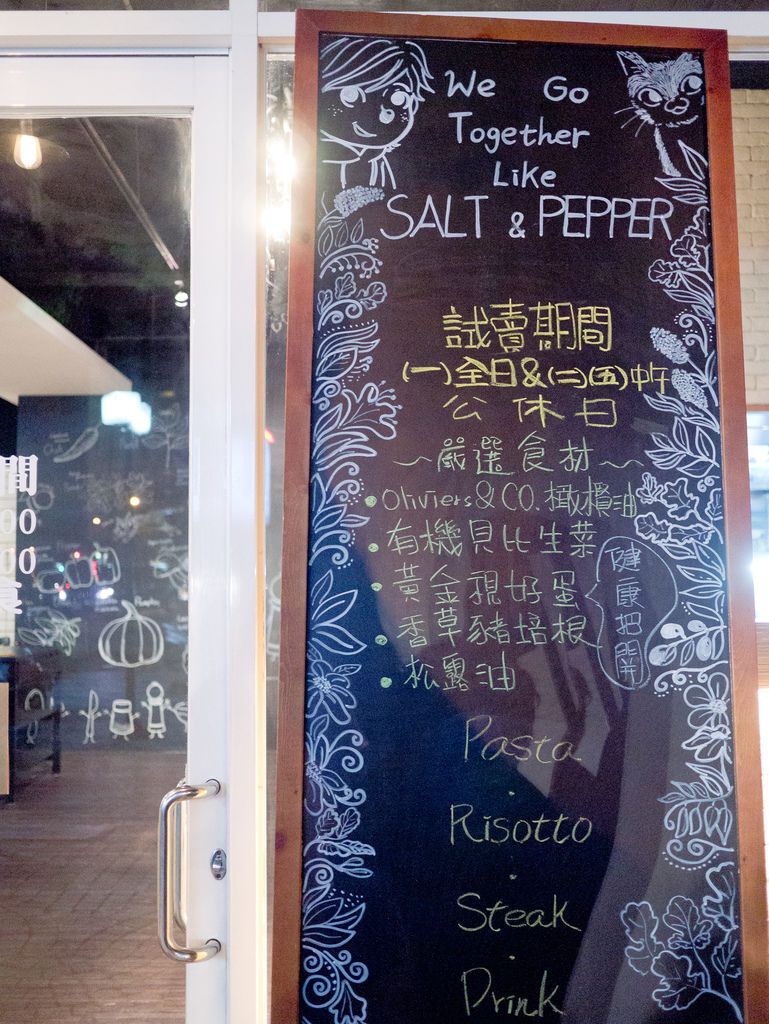 We Go
Together
Like
SALT & PEPPER
試賣期間
(一)全日&(二)(五)中午
公休日
～嚴選食材～
•Oliviers&CO.橄欖油
•有機貝比生菜
•黃金親好蛋
•香草豬培根
•松露油
健康把關
Pasta
•
Risotto
•
Steak
•
Drink
間
00
00